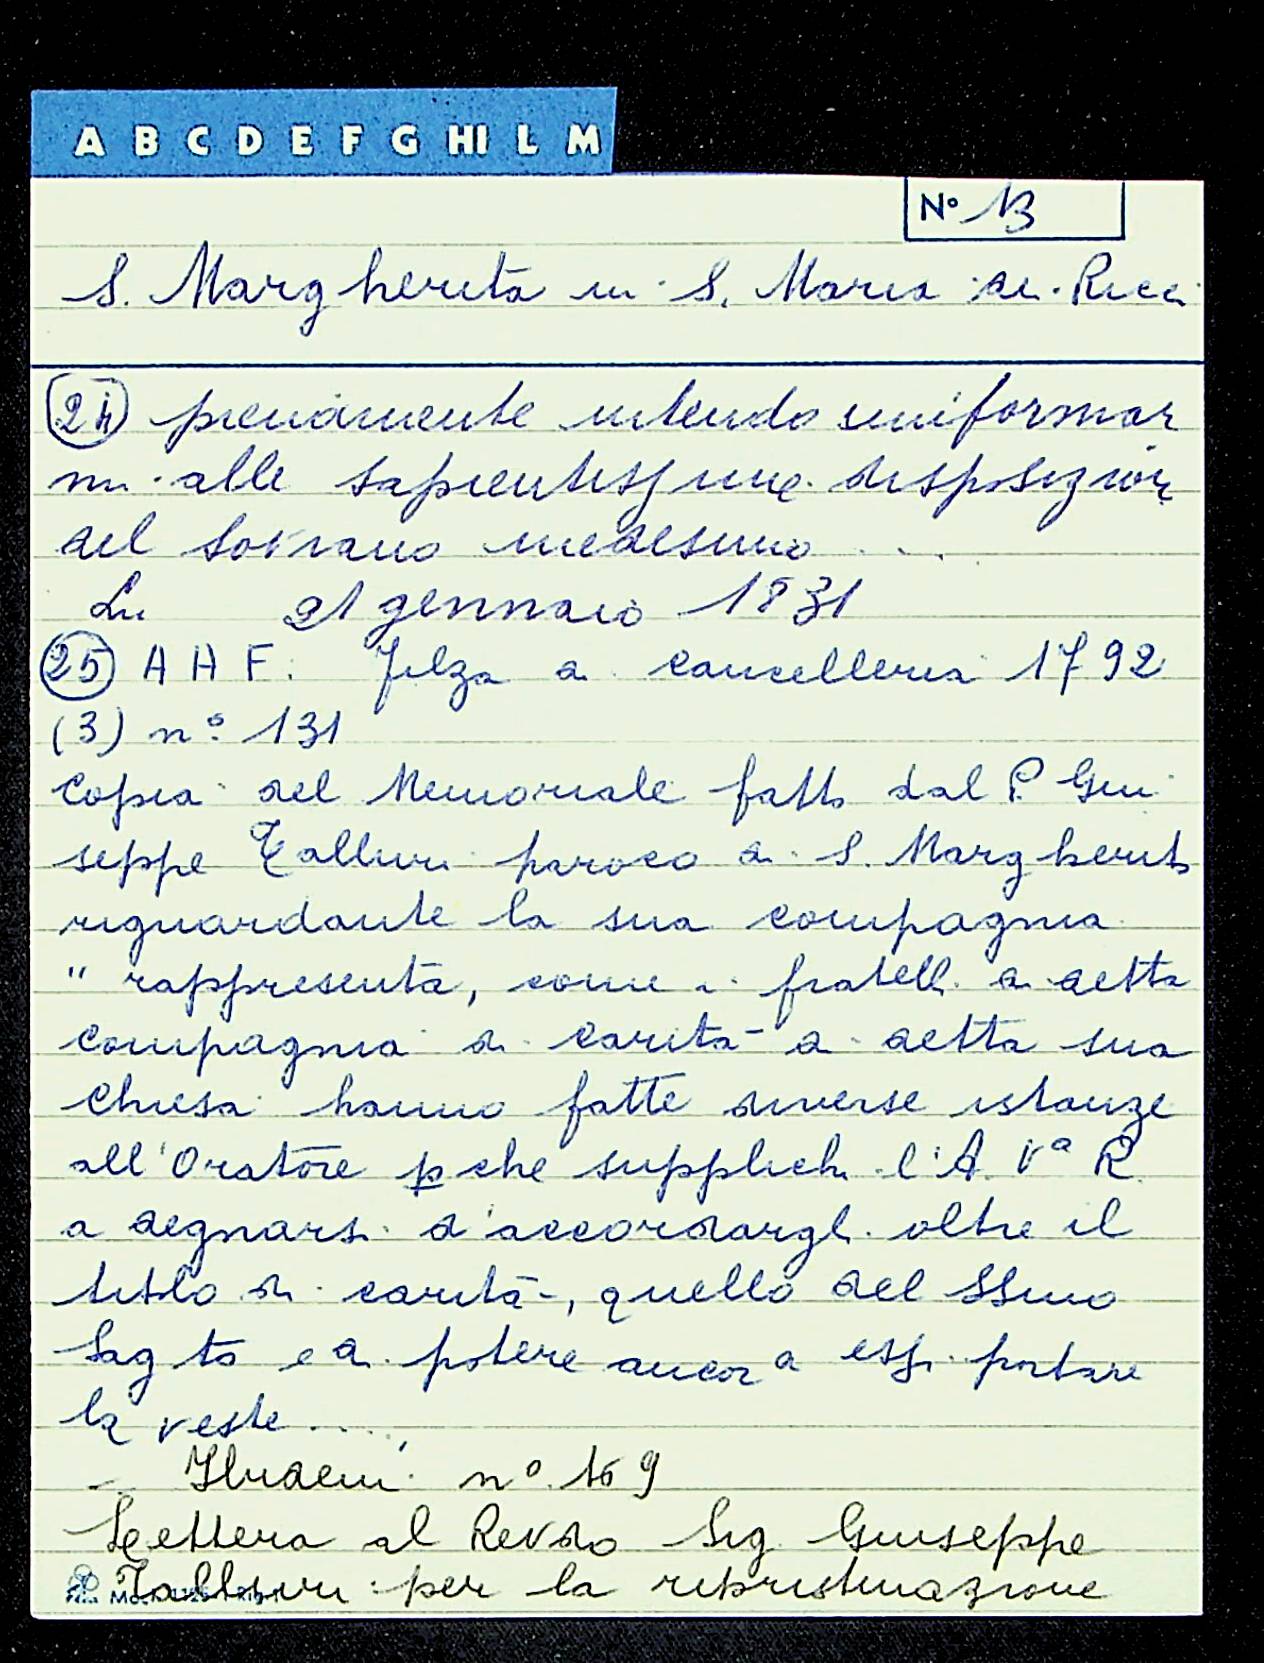 A B C D E F G HI L M
N° 13
S. Margherita in S. Maria de Ricci
(24) pienamente intendo uniformar
mi alle sapientissime disposizioni
del Sovrano medesimo ...
Li 21 gennaio 1831
(25) A A F. Filza di cancelleria 1792
(3) n° 131
Copia del Memoriale fatto dal P. Giu
seppe Talluri paroco di S. Margherita
riguardante la sua compagnia
" rappresenta, come i fratelli di detta
compagnia di carità di detta sua
Chiesa hanno fatte diverse istanze
all'Oratore pche supplichi l'A. Vª R.
a degnarsi d'accordargli oltre il
titolo di carità, quello del SSmo
Sagto e di potere ancora essi portare
la veste ....
- Ibidem n° 169
Lettera al Revdo Sig Giuseppe
Talluri per la ripristinazione